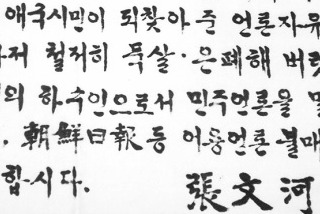 애국시민이 되찾아 준 언론자유
저 철저히 묵살·은폐해 버렷
의 하수인으로서 민주언론을 말
, 朝鮮日報 등 어용언론 불매
합시다.
張文河